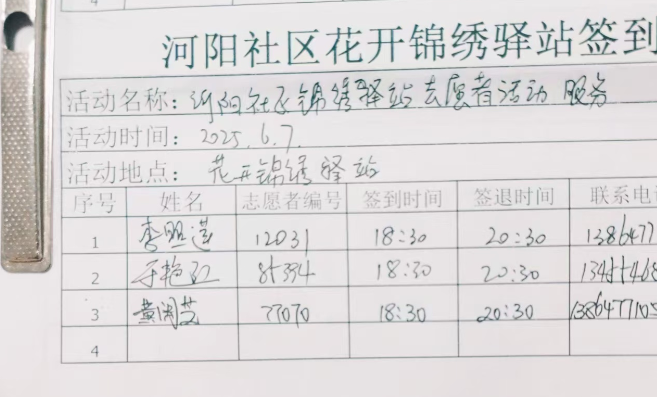 4
河阳社区花开锦绣驿站签到
活动名称：河阳社区锦绣驿站志愿者活动 服务
活动时间：2025.6.7.
活动地点：花开锦绣驿站
序号 姓名 志愿者编号 签到时间 签退时间 联系电话
1 李明莲 12031 18:30 20:30 1386477
2 于艳红 85394 18:30 20:30
3 黄闰芝 77070 18:30 20:30 138647710
4